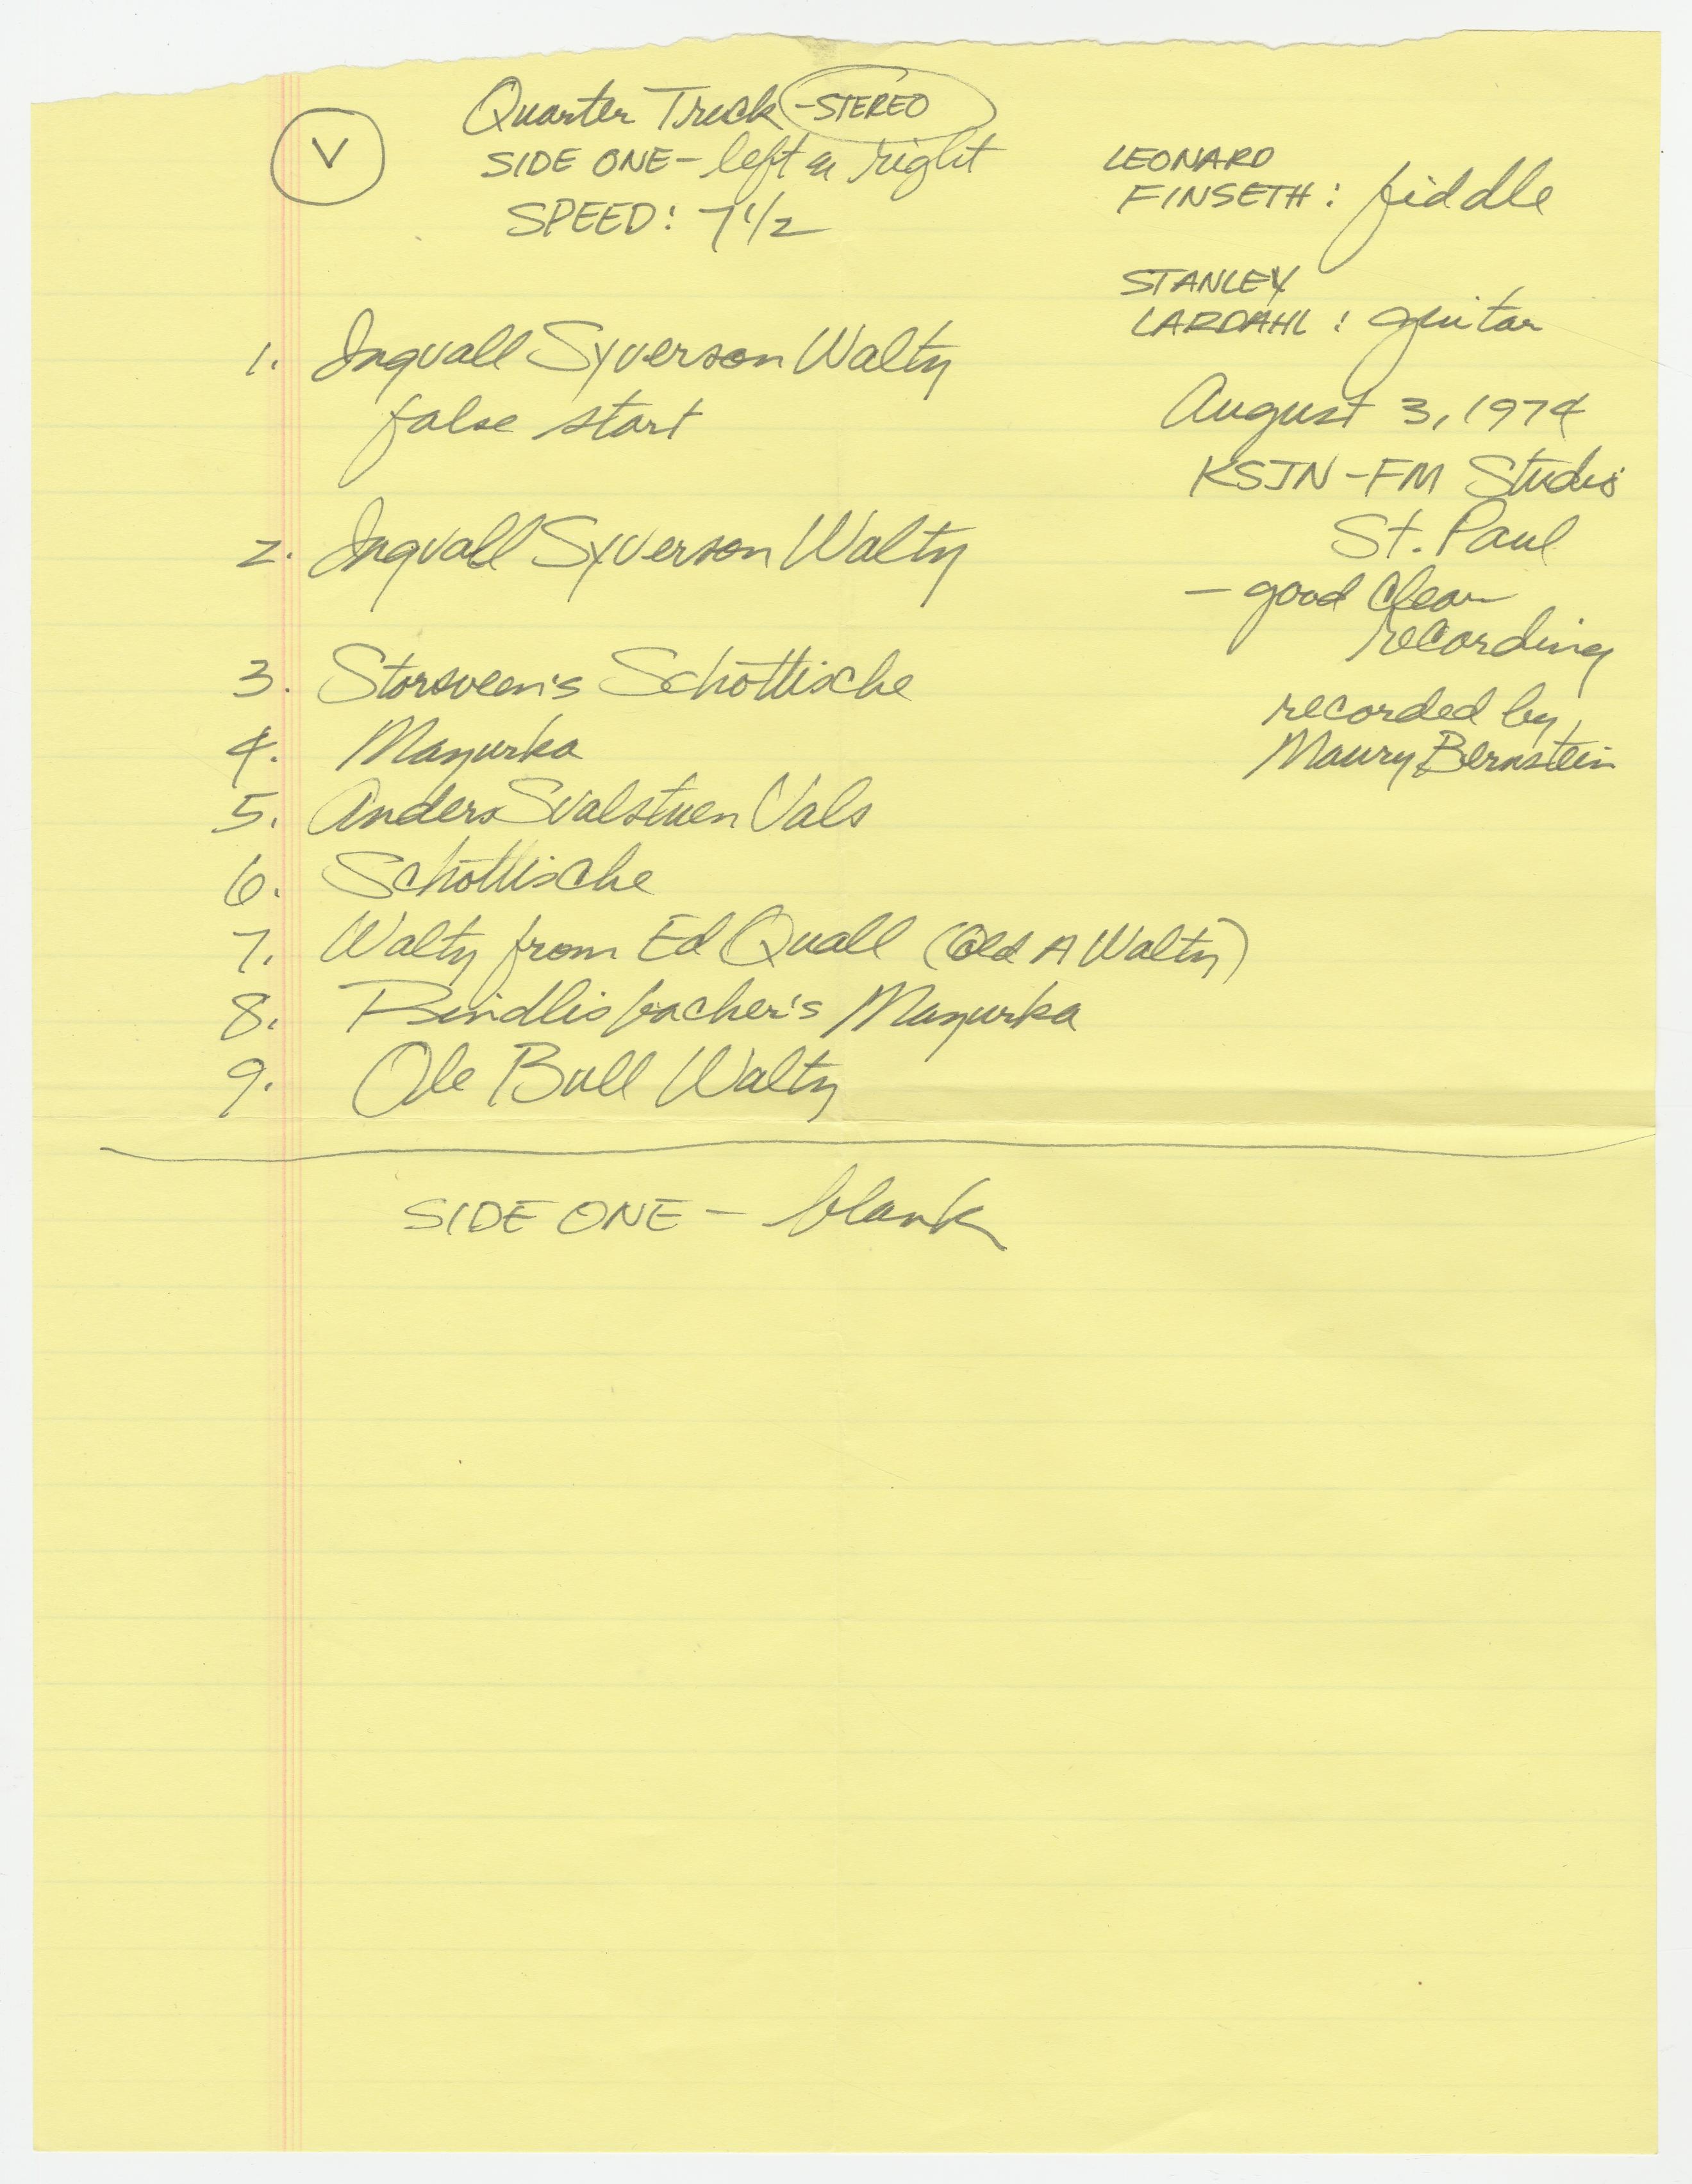 V
Quarter Track -STEREO
SIDE ONE - left & right
SPEED: 7 1/2
LEONARD
FINSETH: fiddle
STANLEY
LARDAHL: guitar
August 3, 1974
KSJN-FM Studio
St. Paul
- good clean
recording
recorded by
Maury Bernstein
1. Ingvall Syverson Waltz
false start
2. Ingvall Syverson Waltz
3. Storsveen's Schottische
4. Mazurka
5. Anders Svalstuen Vals
6. Schottische
7. Waltz from Ed Quall (Old A Waltz)
8. Rindlisbacher's Mazurka
9. Ole Bull Waltz
SIDE ONE - blank